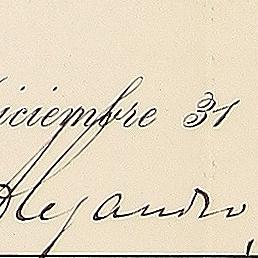 Diciembre 31
Alejandro,